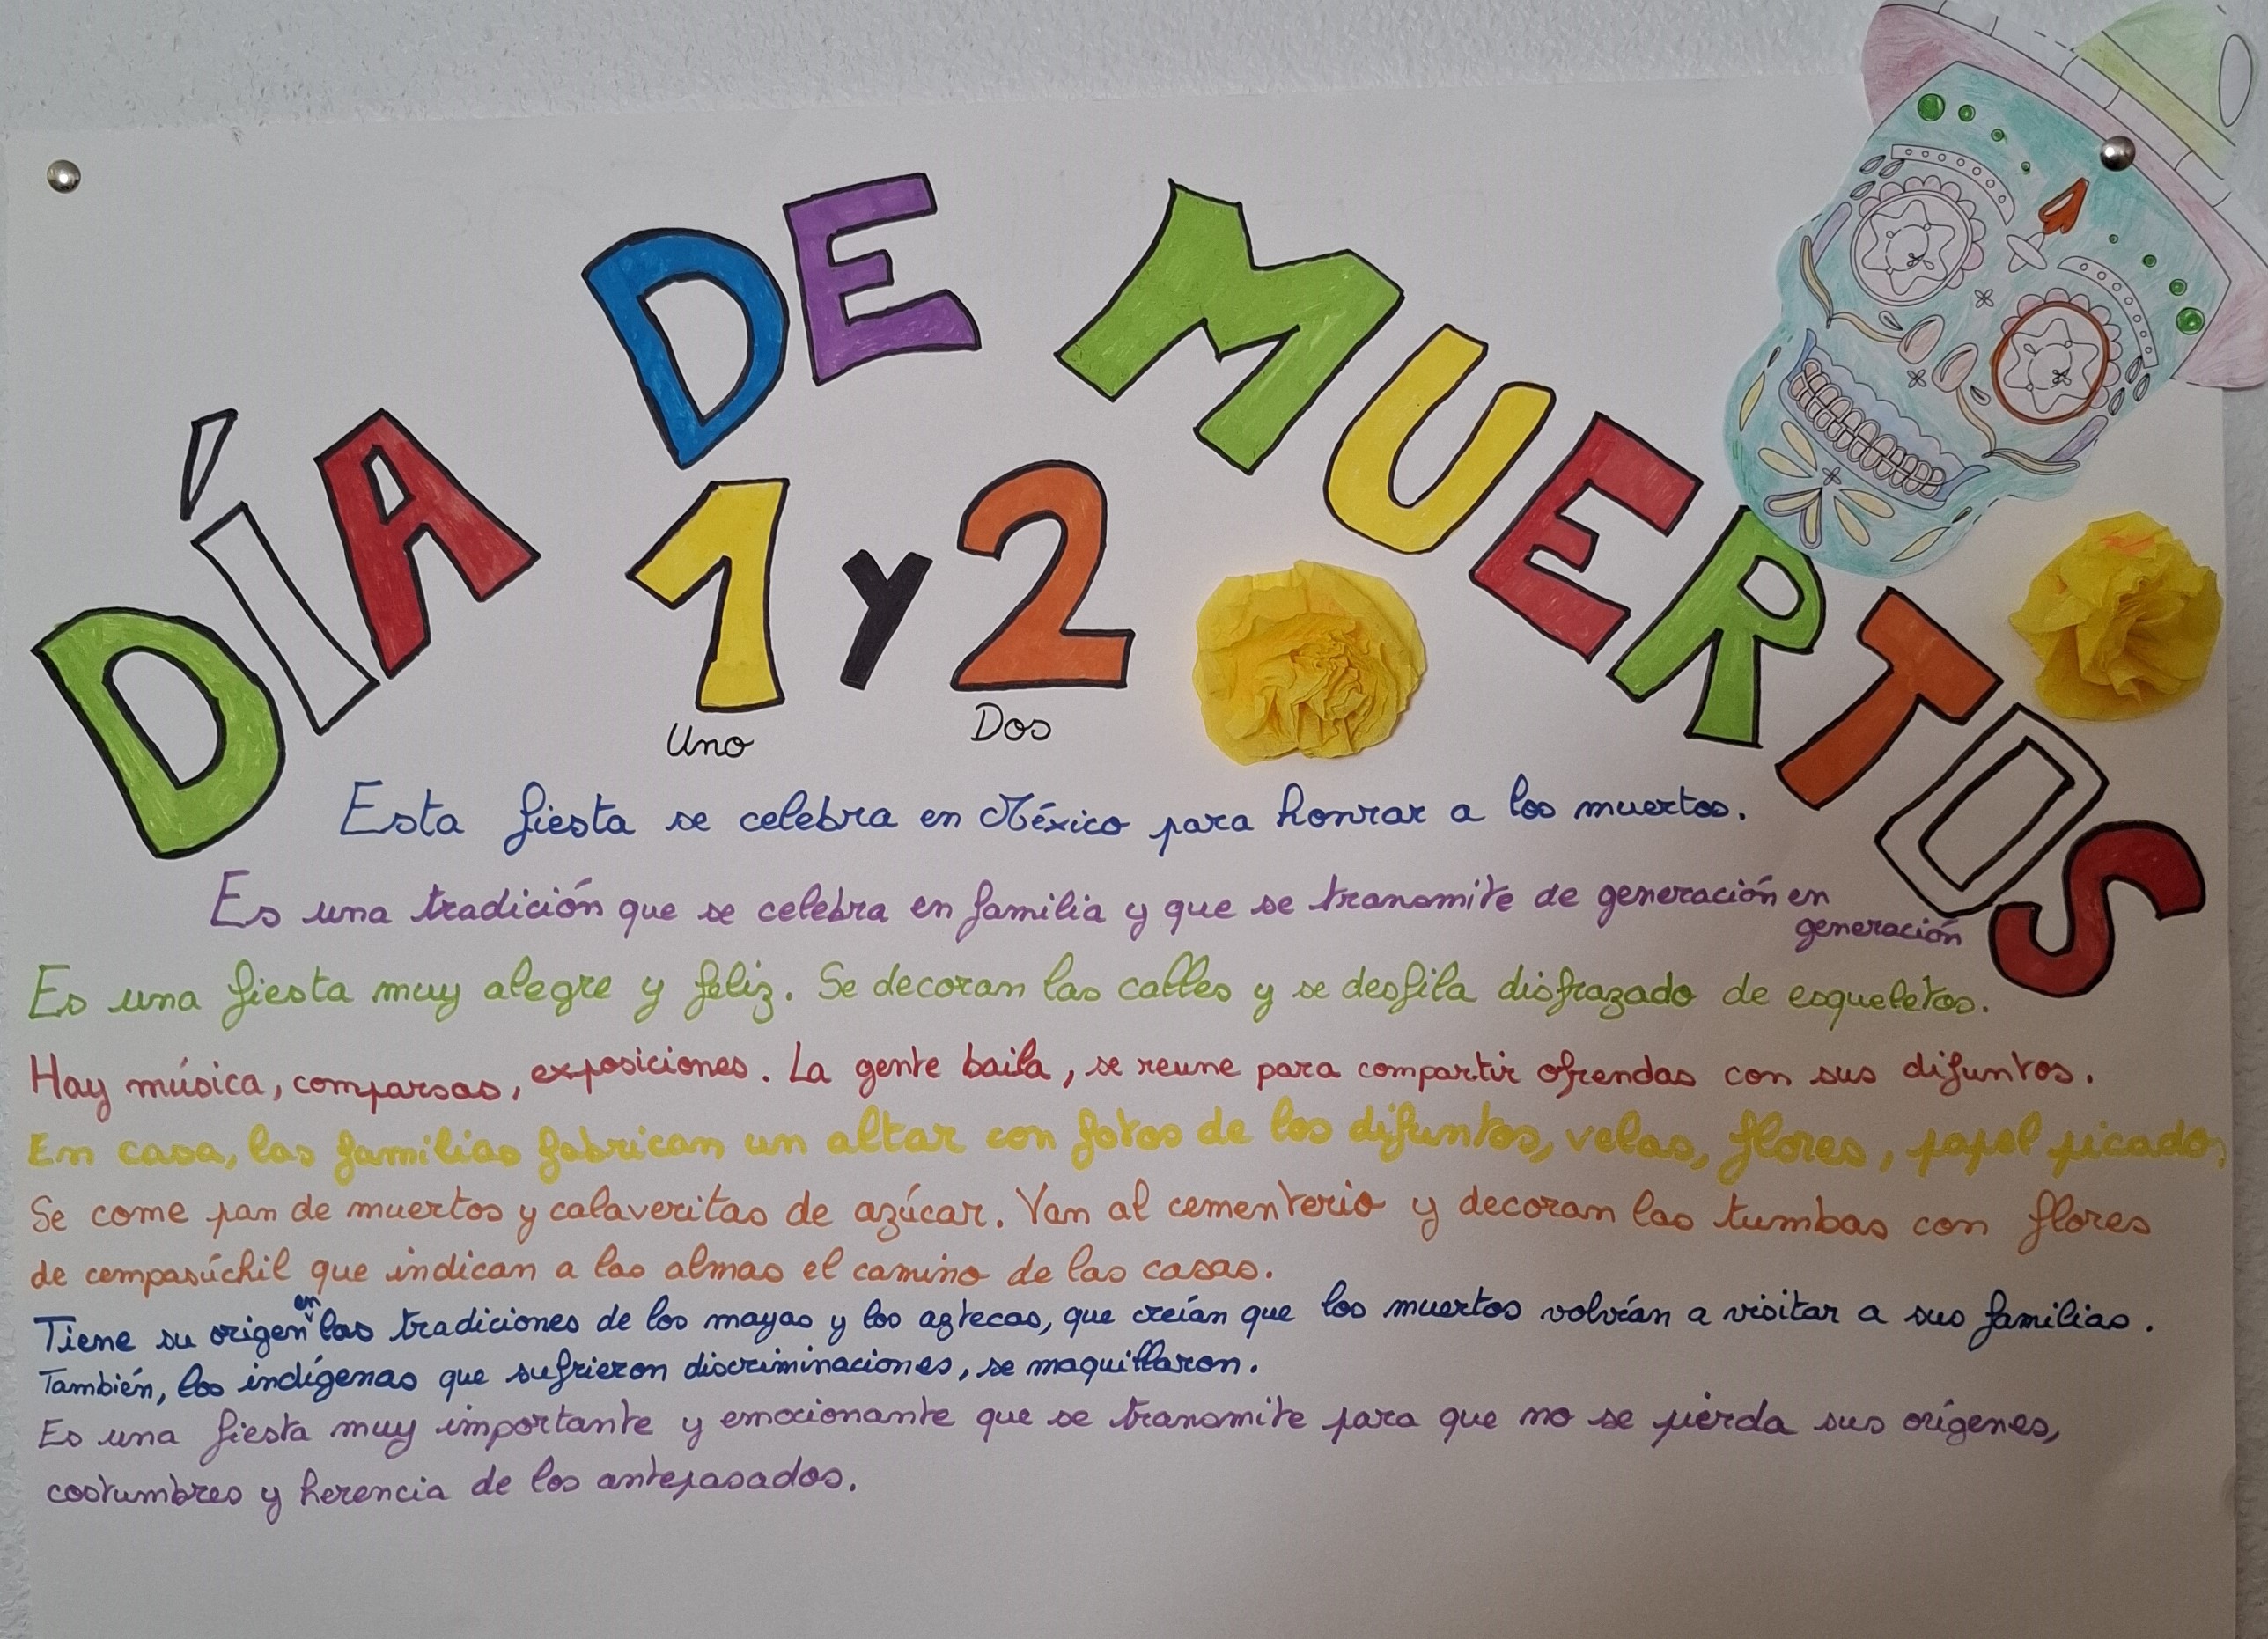 DÍA DE MUERTOS
1 y 2
Uno Dos
Esta fiesta se celebra en México para honrar a los muertos.
Es una tradición que se celebra en familia y que se transmite de generación en
generación
Es una fiesta muy alegre y feliz. Se decoran las calles y se desfila disfrazado de esqueletos.
Hay música, comparsas, exposiciones. La gente baila, se reune para compartir ofrendas con sus difuntos.
En casa, las familias fabrican un altar con fotos de los difuntos, velas, flores, papel picado.
Se come pan de muertos y calaveritas de azúcar. Van al cementerio y decoran las tumbas con flores
de cempasúchil que indican a las almas el camino de las casas.
Tiene su origen en las tradiciones de los mayas y los aztecas, que creían que los muertos volvían a visitar a sus familias.
También, los indígenas que sufrieron discriminaciones, se maquillaron.
Es una fiesta muy importante y emocionante que se transmite para que no se pierda sus orígenes,
costumbres y herencia de los antepasados.